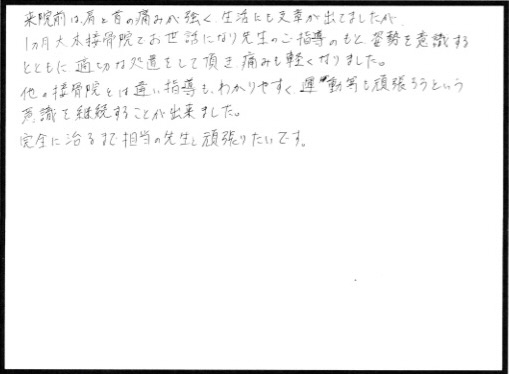 来院前は、肩と首の痛みが強く、生活にも支障が出てましたが、
1ヵ月大本接骨院でお世話になり先生のご指導のもと、姿勢を意識する
とともに適切な処置をして頂き痛みも軽くなりました。
他の接骨院とは違い指導も、わかりやすく、運動等も頑張ろうという
意識を継続することが出来ました。
完全に治るまで担当の先生と頑張りたいです。